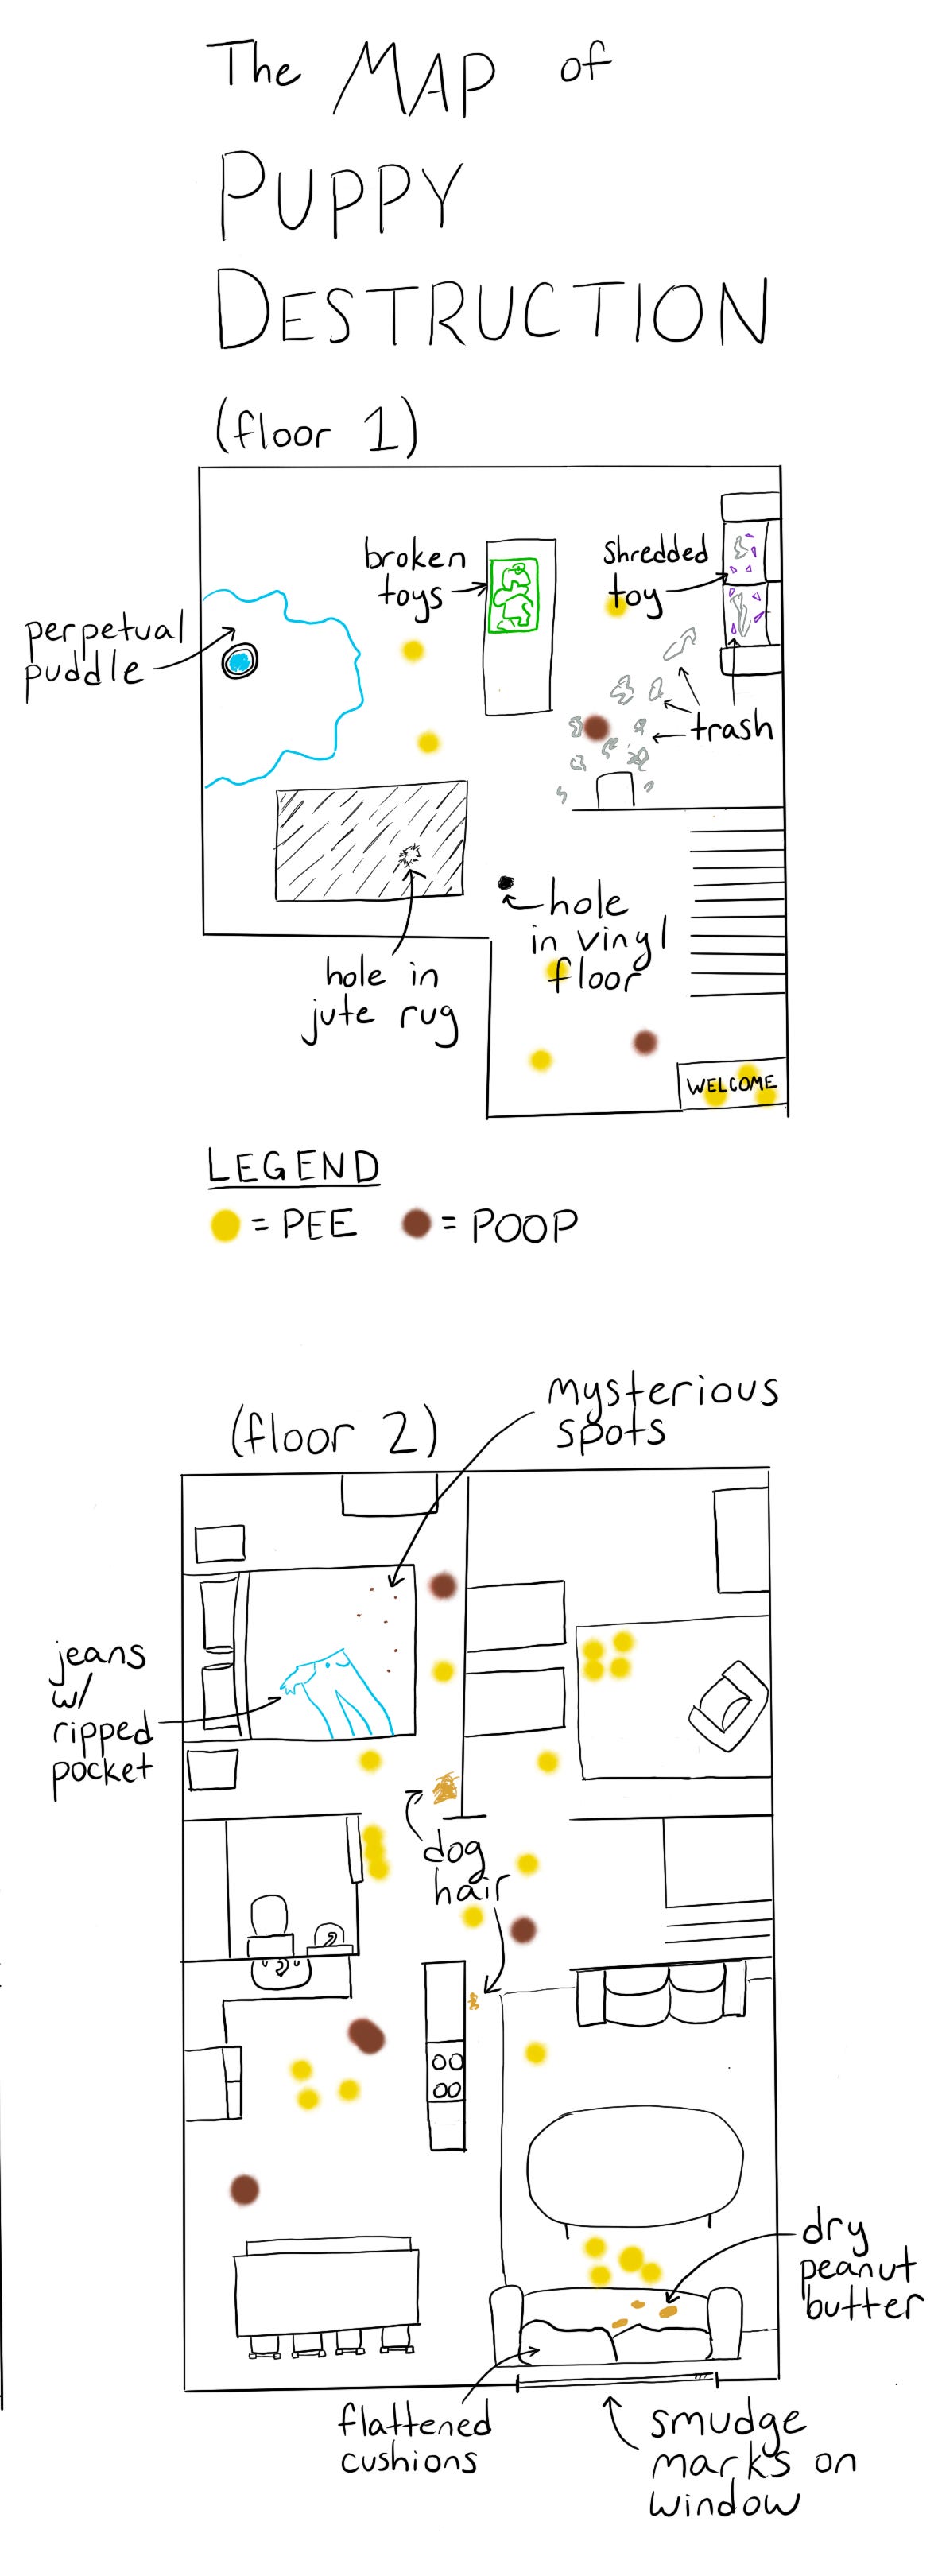 The MAP of
PUPPY
DESTRUCTION
(floor 1)
broken
toys
shredded
toy
perpetual
puddle
trash
hole
in vinyl
floor
hole in
jute rug
WELCOME
LEGEND
= PEE = POOP
mysterious
spots
(floor 2)
jeans
w/
ripped
pocket
dog
hair
dry
peanut
butter
flattened
cushions
smudge
marks on
window